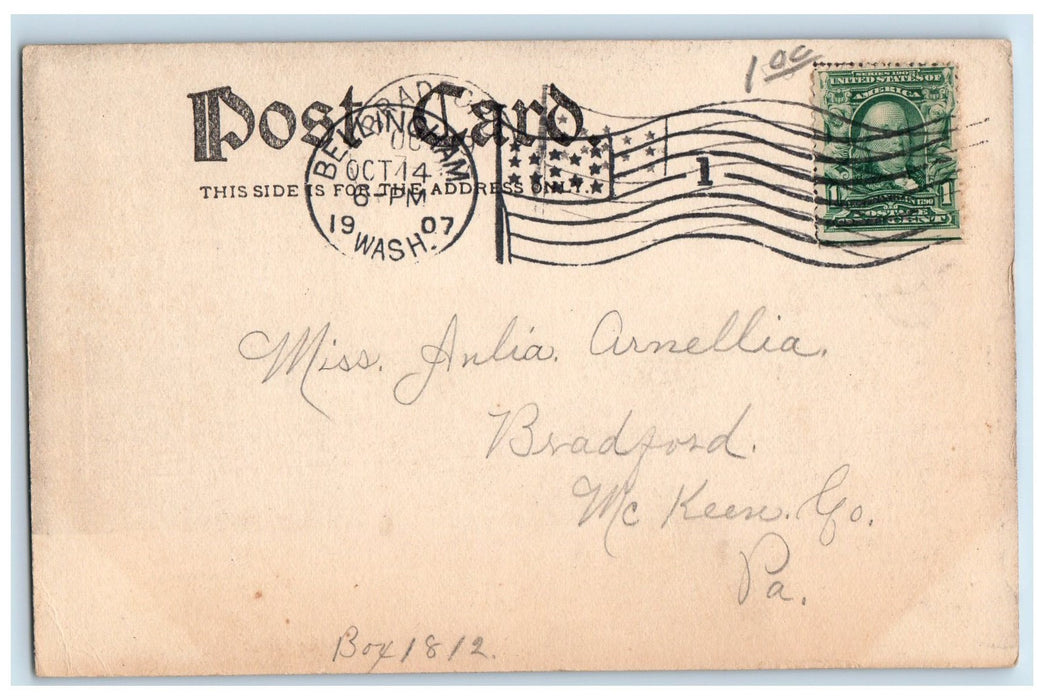 1 00
Post Card.
THIS SIDE IS FOR THE ADDRESS ONLY.
BELLINGHAM
OCT 14
6-PM
19 07
WASH.
1
SERIES 1902
UNITED STATES OF
AMERICA
1 1
POSTAGE
CENT
Miss. Julia. Arnellia.
Bradford.
Mc Keen. Co.
Pa.
Box 1812.